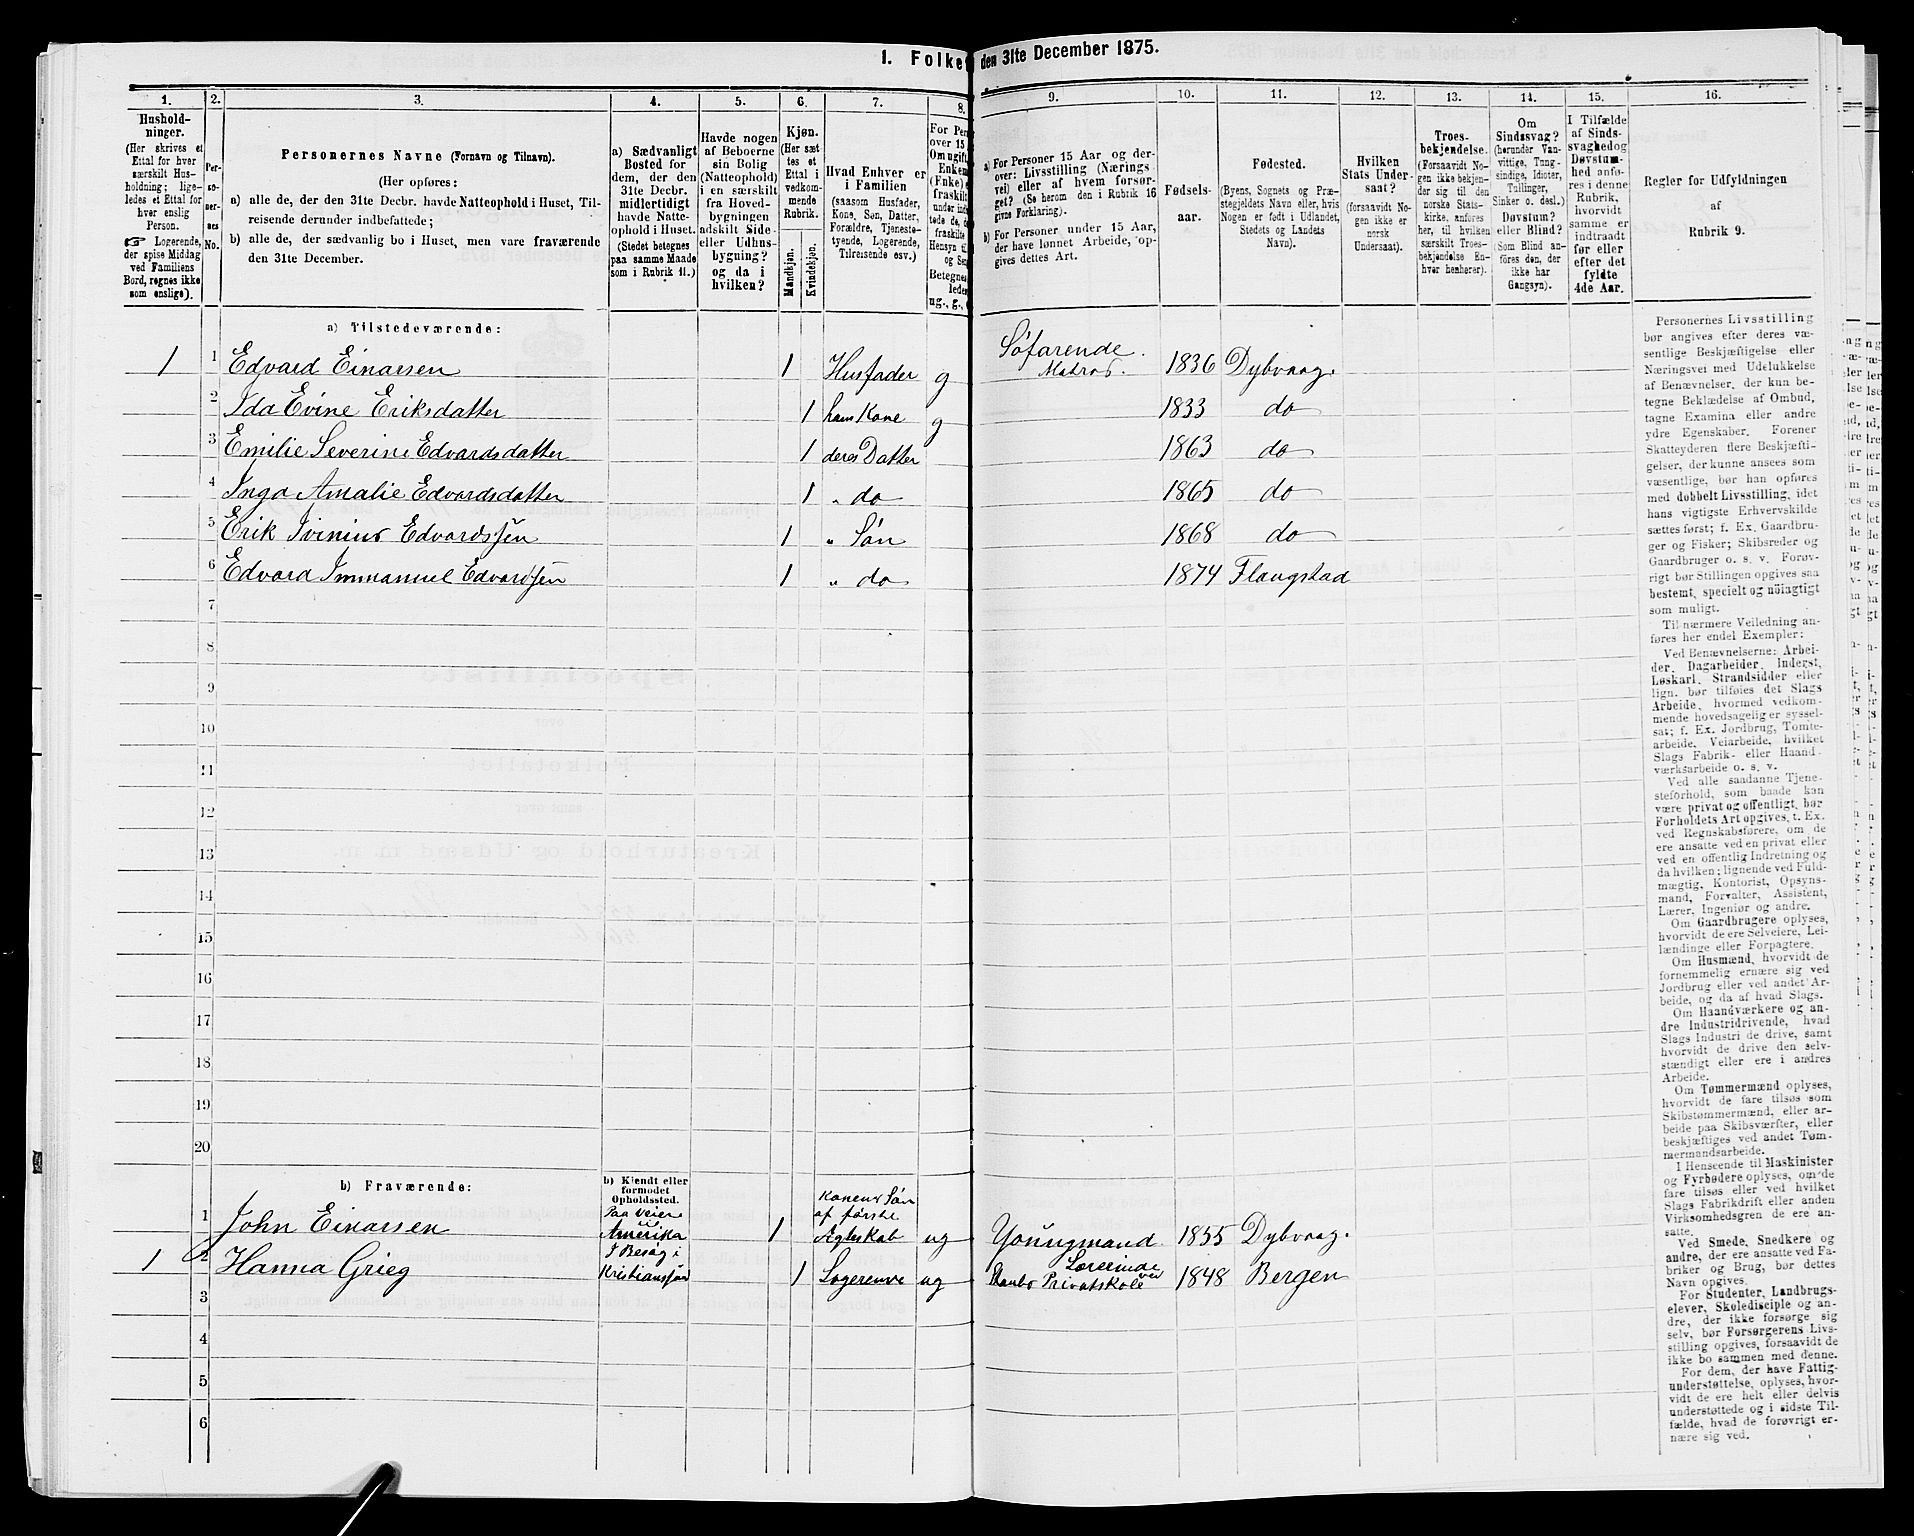 1. Folke den 31te December 1875.
1. 2. 3. 4. 5. 6. 7. 8. 9. 10. 11. 12. 13. 14. 15. 16.
Hushold-
ninger.
(Her skrives et
Ettal for hver
særskilt Hus-
holdning; lige-
ledes et Ettal for
hver enslig
Person.
☞ Logerende,
der spise Middag
ved Familiens
Bord, regnes ikke
som enslige).
Per-
so-
ner-
nes
No.
Personernes Navne (Fornavn og Tilnavn).
(Her opføres:
a) alle de, der den 31te Decbr. havde Natteophold i Huset, Til-
reisende derunder indbefattede;
b) alle de, der sædvanlig bo i Huset, men vare fraværende
den 31te December.
a) Sædvanligt
Bosted for
dem, der den
31te Decbr.
midlertidigt
havde Natte-
ophold i Huset.
(Stedet betegnes
paa samme Maade
som i Rubrik 11.)
Havde nogen
af Beboerne
sin Bolig
(Natteophold)
i en særskilt
fra Hoved-
bygningen
adskilt Side-
eller Udhus-
bygning?
og da i
hvilken?
Kjøn.
(Her sæt-
tes et
Ettal i
vedkom-
mende
Rubrik.
Mandkjøn.
Kvindekjøn.
Hvad Enhver er
i Familien
(saasom Husfader,
Kone, Søn, Datter,
Forældre, Tjeneste-
tyende, Logerende,
Tilreisende osv.)
For Per
over 15
Om ugift,
Enkem
(Enke) e
fraskilt
under ind
tede de,
fraskilte
Hensyn ti
og Se
Betegne
lede
ug., g.,
a) For Personer 15 Aar og der-
over: Livsstilling (Nærings-
vei) eller af hvem forsør-
get? (Se herom den i Rubrik 16
givne Forklaring).
b) For Personer under 15 Aar,
der have lønnet Arbeide, op-
gives dettes Art.
Fødsels-
aar.
Fødested.
(Byens, Sognets og Præ-
stegjeldets Navn eller, hvis
Nogen er født i Udlandet,
Stedets og Landets
Navn).
Hvilken
Stats Under-
saat?
(forsaavidt No-
gen ikke er
norsk
Undersaat).
Troes-
bekjendelse.
(Forsaavidt No-
gen ikke bekjen-
der sig til den
norske Stats-
kirke, anføres
her, til hvilken
særskilt Troes-
bekjendelse En-
hver henhører).
Om
Sindssvag?
(herunder Van-
vittige, Tung-
sindige, Idioter,
Tullinger,
Sinker o. desl.)
Døvstum?
eller Blind?
(Som Blind an-
føres den, der
ikke har
Gangsyn).
I Tilfælde
af Sinds-
svaghed og
Døvstum-
hed anfø-
res i denne
Rubrik,
hvorvidt
samme er
indtraadt
før eller
efter det
fyldte
4de Aar.
Regler for Udfyldningen
af
Rubrik 9.
a) Tilstedeværende:
1 1 Edvard Einarsen 1 Husfader g Søfarende. Matros. 1836 Dybvaag.
2 Ida Evine Eriksdatter 1 hans Kone g 1833 do
3 Emilie Severine Edvardsdatter 1 deres Datter 1863 do
4 Inga Amalie Edvardsdatter 1 " do 1865 do
5 Erik Ivinius Edvardssen 1 " Søn 1868 do
6 Edvard Immanuel Edvardssen 1 " do 1874 Flaugstad
7
8
9
10
11
12
13
14
15
16
17
18
19
20
b) Fraværende:
b) Kjendt eller
formodet
Opholdssted.
1 John Einarsen Paa Veien til Amerika 1 Konens Søn af første Ægteskab ug Youngmand 1855 Dybvaag.
1 2 Hanna Grieg I Besøg i Kristianssand 1 Logerende ug Lærerinde ved Privatskole 1848 Bergen
3
4
5
6
Personernes Livsstilling
bør angives efter deres væ-
sentlige Beskjæftigelse eller
Næringsvei med Udelukkelse
af Benævnelser, der kun be-
tegne Beklædelse af Ombud,
tagne Examina eller andre
ydre Egenskaber. Forener
Skatteyderen flere Beskjæfti-
gelser, der kunne ansees som
væsentlige, bør han opføres
med dobbelt Livsstilling, idet
hans vigtigste Erhvervskilde
sættes først; f. Ex. Gaardbru-
ger og Fisker; Skibsreder og
Gaardbruger o. s. v. Forøv-
rigt bør Stillingen opgives saa
bestemt, specielt og nöiagtigt
som muligt.
Til nærmere Veiledning an-
føres her endel Exempler:
Ved Benævnelserne: Arbei-
der, Dagarbeider, Inderst,
Løskarl, Strandsidder eller
lign. bør tilføies det Slags
Arbeide, hvormed vedkom-
mende hovedsagelig er syssel-
sat; f. Ex. Jordbrug, Tomte-
arbeide, Veiarbeide, hvilket
Slags Fabrik- eller Haand-
værksarbeide o. s. v.
Ved alle saadanne Tjene-
steforhold, som baade kan
være privat og offentligt, bør
Forholdets Art opgives, t. Ex.
ved Regnskabsførere, om de
ere ansatte ved en privat eller
ved en offentlig Indretning og
da hvilken; lignende ved Fuld-
mægtig, Kontorist, Opsyns-
mand, Forvalter, Assistent,
Lærer, Ingeniør og andre.
Om Gaardbrugere oplyses,
hvorvidt de ere Selveiere, Lei-
lændinge eller Forpagtere.
Om Husmænd, hvorvidt de
fornemmelig ernære sig ved
Jordbrug eller ved andet Ar-
beide, og da af hvad Slags.
Om Haandværkere og an-
dre Industridrivende, hvad
Slags Industri de drive, samt
hvorvidt de drive den selv-
stændigt eller ere i andres
Arbeide.
Om Tømmermænd oplyses,
hvorvidt de fare tilsøs som
Skibstømmermænd, eller ar-
beide paa Skibsværfter, eller
beskjæftiges ved andet Tøm-
mermandsarbeide.
I Henseende til Maskinister
og Fyrbødere oplyses, om de
fare tilsøs eller ved hvilket
Slags Fabrikdrift eller anden
Virksomhedsgren de ere an-
satte.
Ved Smede, Snedkere og
andre, der ere ansatte ved Fa-
briker og Brug, bør dettes
Navn opgives.
For Studenter, Landbrugs-
elever, Skoledisciple og an-
dre, der ikke forsørge sig
selv, bør Forsørgerens Livs-
stilling opgives, forsaavidt de
ikke bo sammen med denne.
For dem, der have Fattig-
understøttelse, oplyses, hvor-
vidt de ere helt eller delvis
understøttede og i sidste Til-
fælde, hvad de forøvrigt er-
nære sig ved.